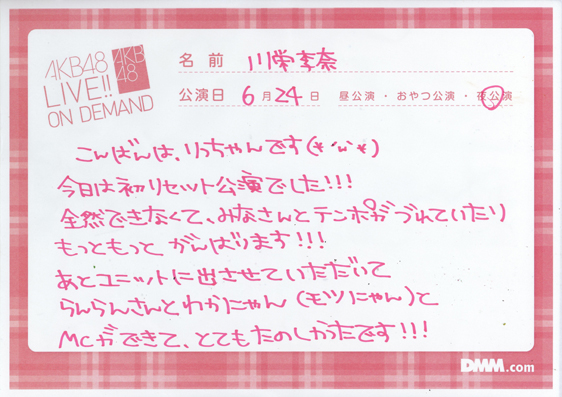 AKB48
LIVE!!
ON DEMAND
AKB
48
名前 川栄李奈
公演日 6月24日 昼公演・おやつ公演・夜公演
こんばんは、りっちゃんです(*'ω'*)
今日は初リセット公演でした!!!
全然できなくて、みなさんとテンポがづれていたり
もっともっと がんばります!!!
あとユニットに出させていただいて
らんらんさんとわかにゃん(モツにゃん)と
MCができて、とてもたのしかったです!!!
DMM.com